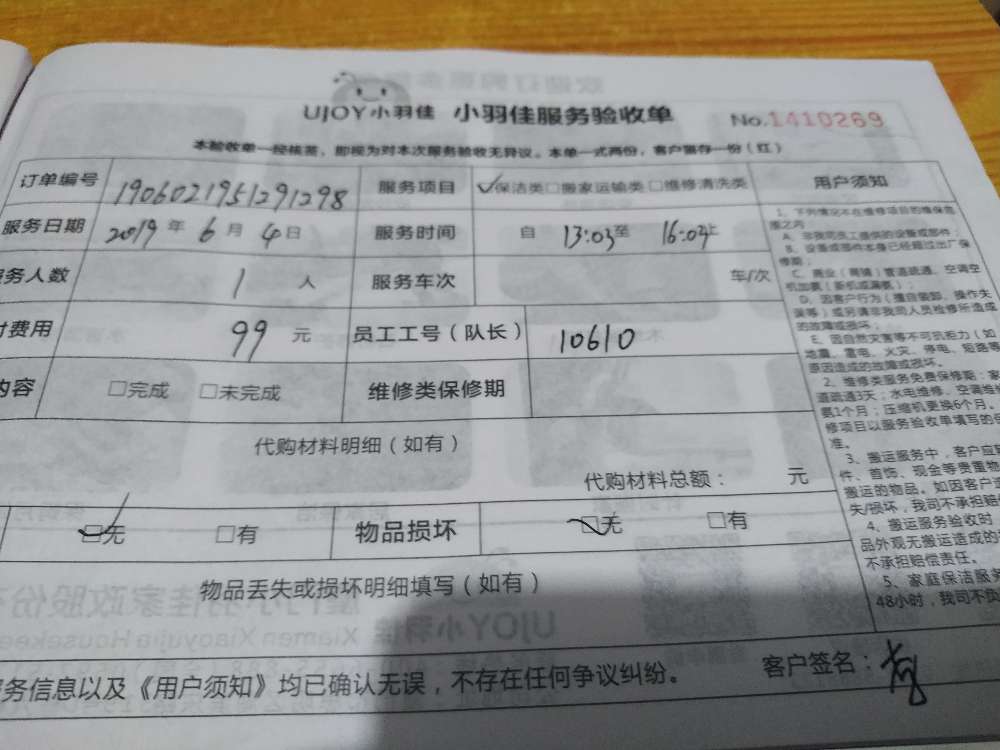 UJOY小羽佳 小羽佳服务验收单 No.1410269
本验收单一经核签，即视为对本次服务验收无异议。本单一式两份，客户留存一份（红）
订单编号 1906021951291298 服务项目 ☑保洁类□搬家运输类□维修清洗类 用户须知
服务日期 2019年6月4日 服务时间 自 13:03至 16:04止
务人数 1 人 服务车次 车/次
付费用 99 元 员工工号（队长） 10610
内容 □完成 □未完成 维修类保修期
代购材料明细（如有）
代购材料总额： 元
☑无 □有 物品损坏 ☑无 □有
物品丢失或损坏明细填写（如有）
务信息以及《用户须知》均已确认无误，不存在任何争议纠纷。 客户签名：
1、下列情况不在维修项目的维保范
围之内
A、非我司员工提供的设备或部件；
B、设备或部件本身已经超过出厂保
修期；
C、商业（商铺）管道疏通、空调空
机加氨（新机或漏氨）；
D、因客户行为（擅自装卸、操作失
误等）或另请非我司人员检修所造成
的故障或损坏；
E、因自然灾害等不可抗拒力（如
地震、雷电、火灾、停电、短路等
原因造成的故障或损坏。
2、维修类服务免费保修期：家
道疏通3天；水电维修、空调维
氨1个月；压缩机更换6个月。
修项目以服务验收单填写的
准。
3、搬运服务中，客户应
件、首饰、现金等贵重物
搬运的物品。如因客户
失/损坏，我司不承担赔
4、搬运服务验收时
品外观无搬运造成的
不承担赔偿责任。
5、家庭保洁服务
48小时，我司不负